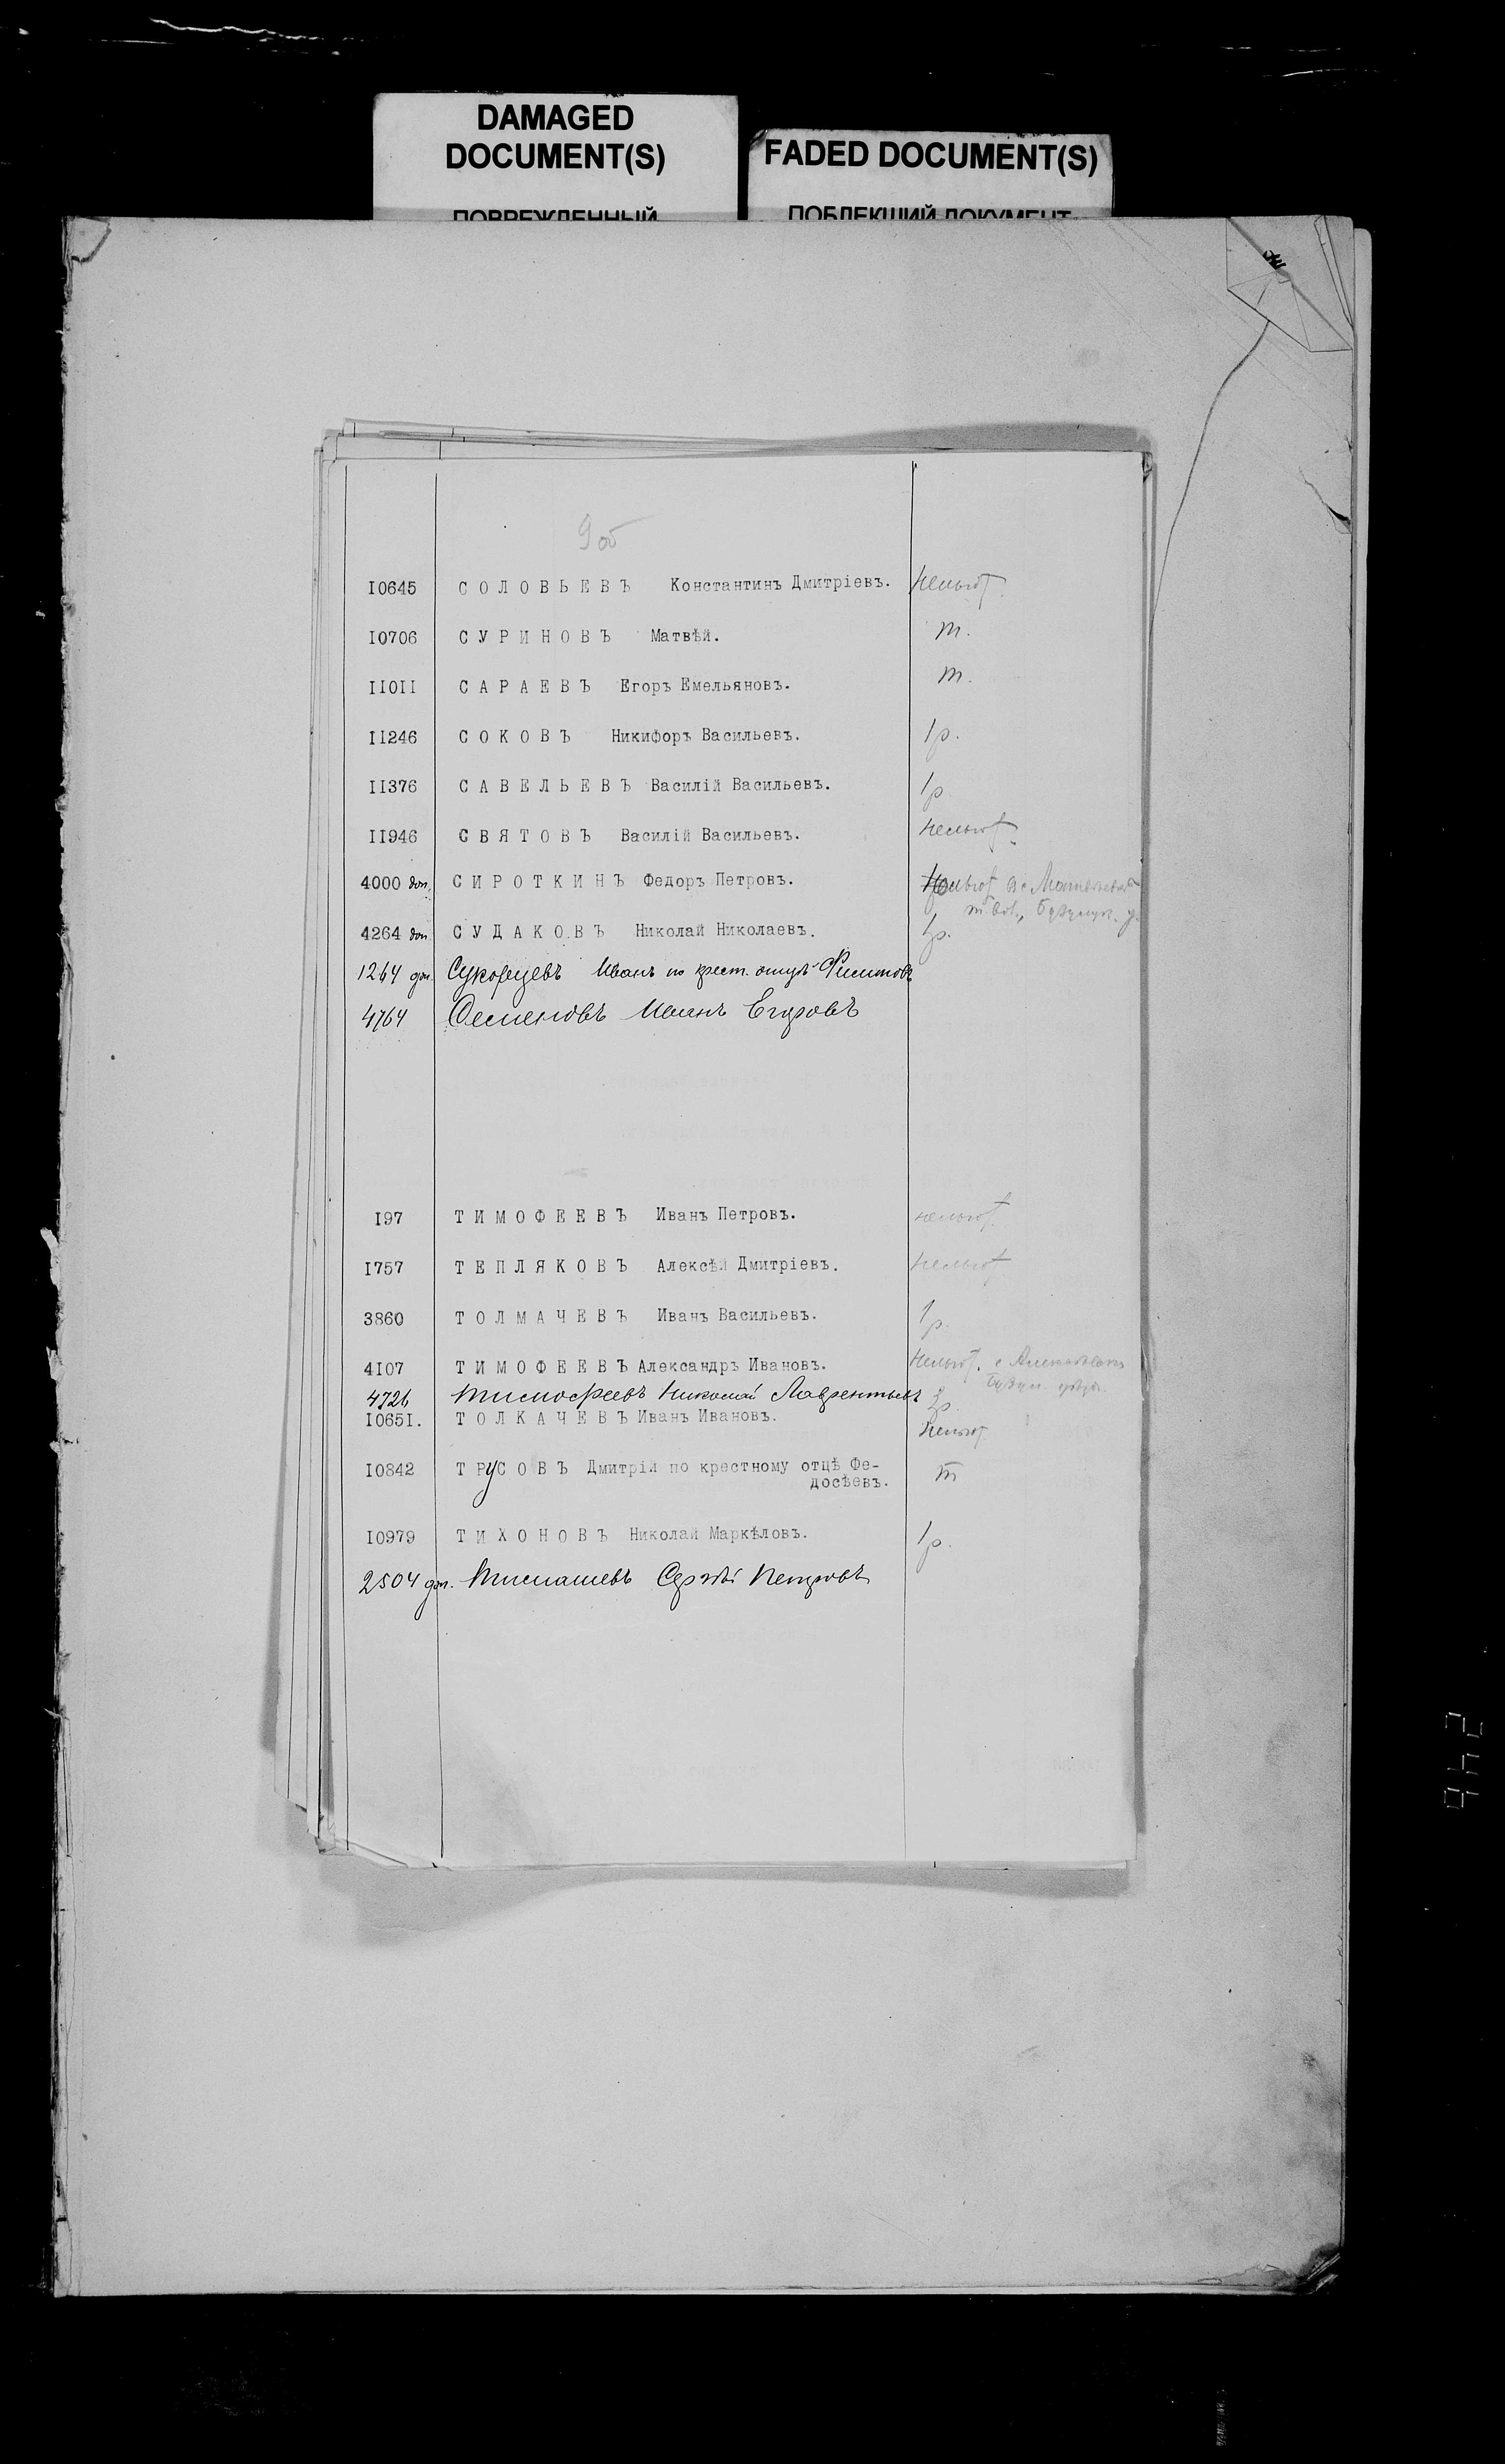 DAMAGED
DOCUMENT(S)
ПОВРЕЖДЕННЫЙ
FADED DOCUMENT(S)
ПОБЛЕКШИЙ ДОКУМЕНТ
9об
I0645 СОЛОВЬЕВЪ Константинъ Дмитріевъ. нельгот.
I0706 СУРИНОВЪ Матвѣй. т.
IIOII САРАЕВЪ Егоръ Емельяновъ. т.
II246 СОКОВЪ Никифоръ Васильевъ. 1р.
II376 САВЕЛЬЕВЪ Василій Васильевъ. 1р.
II946 СВЯТОВЪ Василій Васильевъ. нельгот.
4000 доп. СИРОТКИНЪ Федоръ Петровъ. нельгот
вол., Бузулук. у.
4264 доп СУДАКОВЪ Николай Николаевъ. 1р.
1264 доп. Иванъ по крест. отцу Филиповъ
4764 Семеновъ Иванъ Егоровъ
I97 ТИМОФЕЕВЪ Иванъ Петровъ. нельгот.
I757 ТЕПЛЯКОВЪ Алексѣй Дмитріевъ. нельгот
3860 ТОЛМАЧЕВЪ Иванъ Васильевъ. 1р.
4I07 ТИМОФЕЕВЪ Александръ Ивановъ. нельгот. с
Бузул. уѣзда.
4726 Тимофеевъ Николай Лаврентьевъ
I065I. ТОЛКАЧЕВЪ Иванъ Ивановъ. нельгот
I0842 ТРУСОВЪ Дмитрій по крестному отцѣ Фе-
досѣевъ. т
I0979 ТИХОНОВЪ Николай Маркѣловъ. 1р.
2504 доп. Тимашевъ Сергѣй Петровъ
246